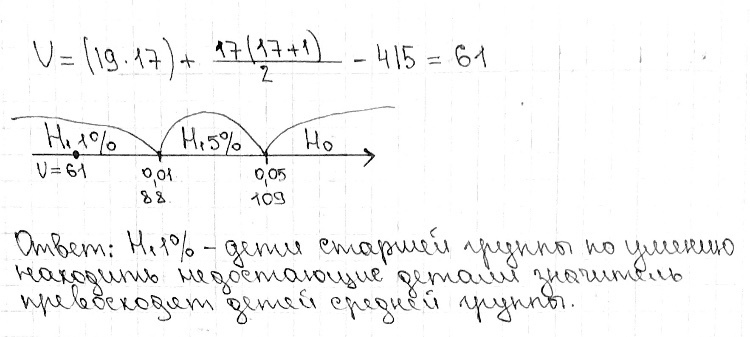 U = (19·17) + 17(17+1)/2 - 415 = 61
H₁1% H₁5% H₀
U=61 0,01 0,05
88 109
Ответ: H₁1% - дети старшей группы по умению
находить недостающие детали значитель
превосходят детей средней группы.